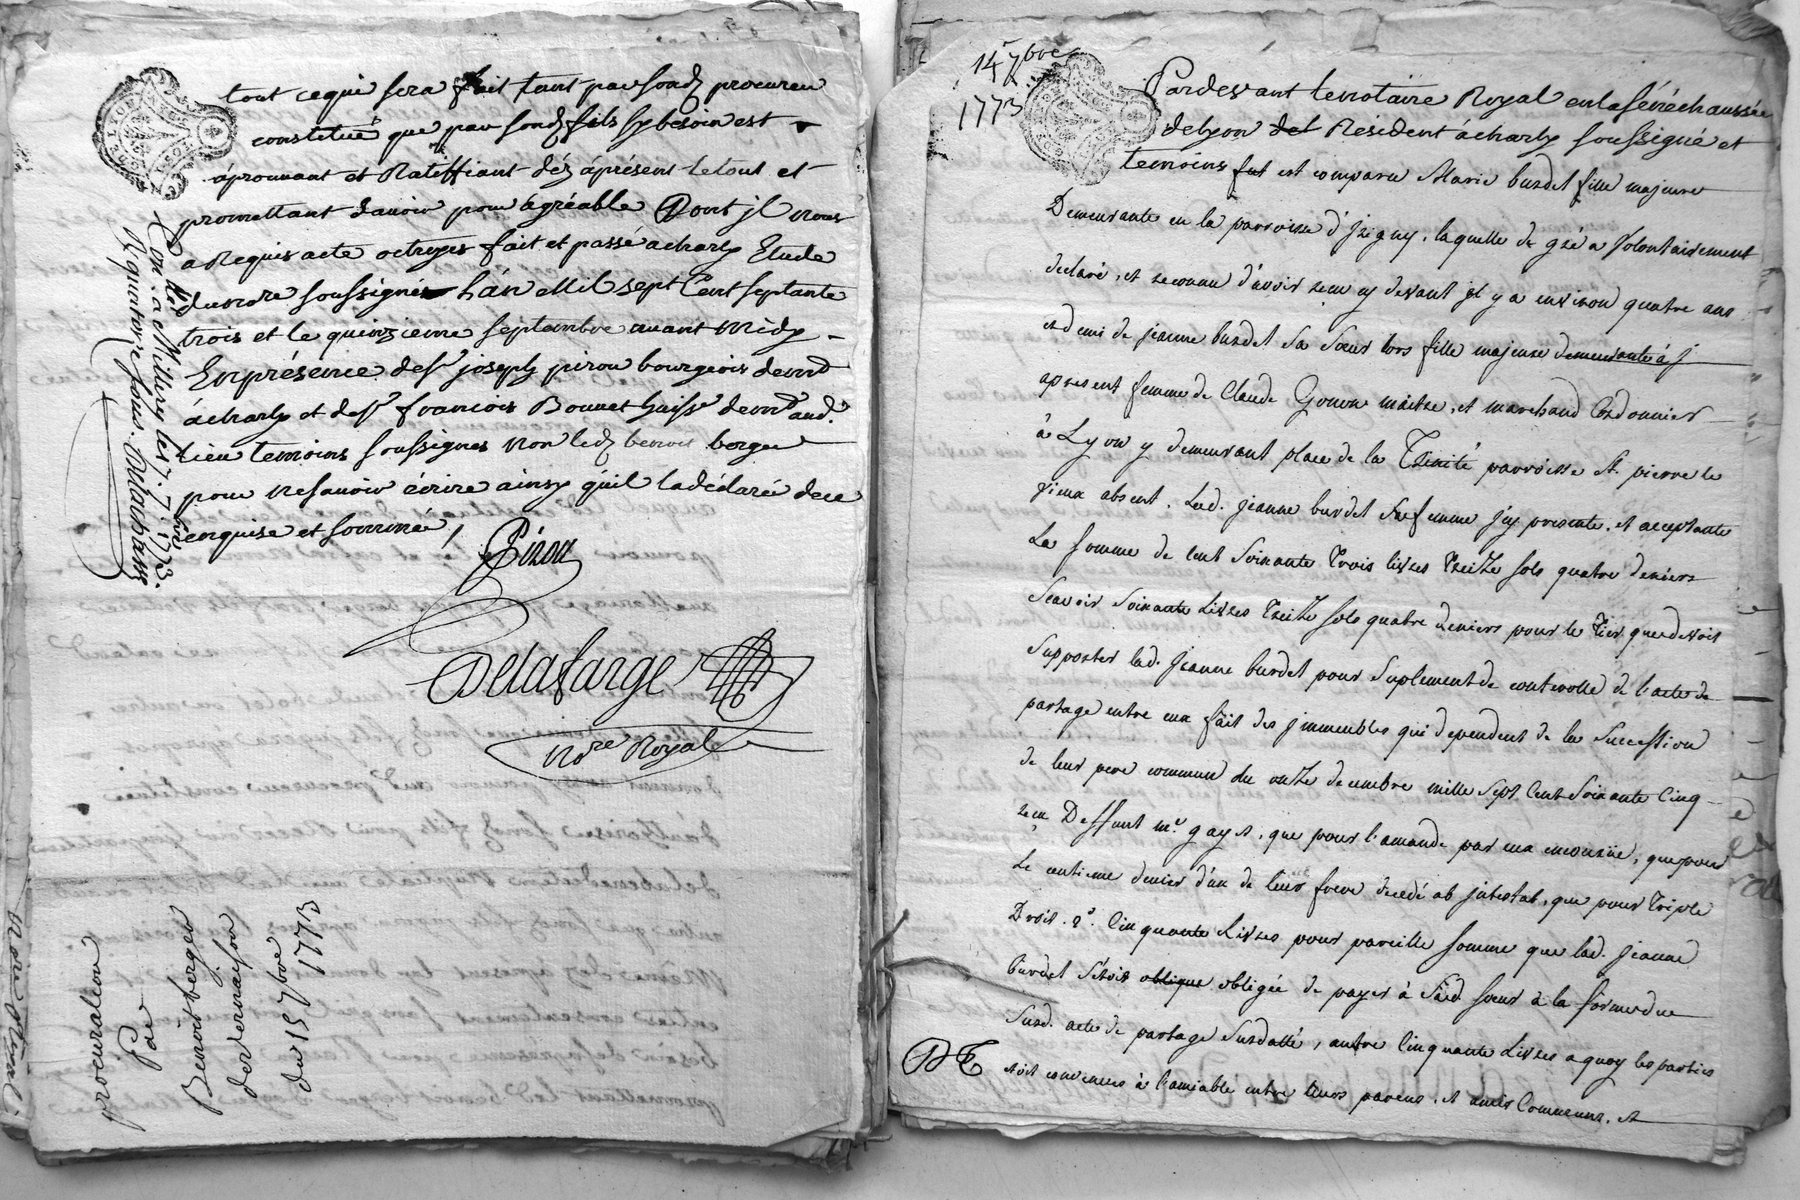 tout ce qui sera fait tant par sond procureur
constitué que par sond fils sy besoin est
aprouvant et Ratiffiant dés áprésent le tout et
promettant davoir pour agréable Dont jl nous
a Requis acte octroyes fait et passé a charly Etude
du nore soussignes Lán Mil sept Cent septante
trois et le quinzieme septembre avant Midy
En présence de sr joseph pirou bourgeois demt
á charly et de sr francois Bonnet huissr demt aud.
lieu temoins soussignes non led benoit berger
pour ne sçavoir écrire ainsy qúil la déclaré de ce
enquis et sommé
Con. a Millery le 17. 7bre 1773.
R quatorze sous.
Pirou
Delafarge
nore Royal
procuration
Par
Benoit berger
de vernaison
du 15 7bre
1773
14 7bre
1773
Pardevant le notaire Royal en la sénéchaussée
de lyon del Résident á charly soussigné et
temoins fut est comparu Marie burdet fille majeure
Demeurante en la parroisse d'jrigny, laquelle de gré a volontairement
declaré, et reconnu d'avoir recu cy devant jl y a environ quatre ans
et demi de jeanne burdet sa soeur lors fille majeure demeurante á j
apresent femme de Claude Gonon maitre, et marchand Cordonnier
à Lyon y demeurant place de la Trinité parroisse st. pierre le
vieux absent. Lad. jeanne burdet sa femme jcy presente, et acceptante
La somme de cent soixante Trois livres Treize sols quatre deniers
Scavoir soixante Livres Treize sols quatre deniers pour le Tier que devoit
supporter lad. jeanne burdet pour suplement de controlle de l'acte de
partage entre eux fait des jmmeubles qui dependent de la succession
de leur pere commun du onze decembre mille sept Cent soixante Cinq
recu Deffunt mr. gayet, que pour l'amande par eux encourüe, que pour
Le centieme denier d'un de leur frere decedé ab jntestat, que pour Triple
Droit. Cinquante Livres pour pareille somme que lad. jeanne
burdet s'étoit oblique obligée de payer à sad. soeur à la forme du
susd. acte de partage susdatté, autre Cinquante Livres a quoy les parties
DE sont convenus à l'amiable entre leurs parens, et amis Communs, et